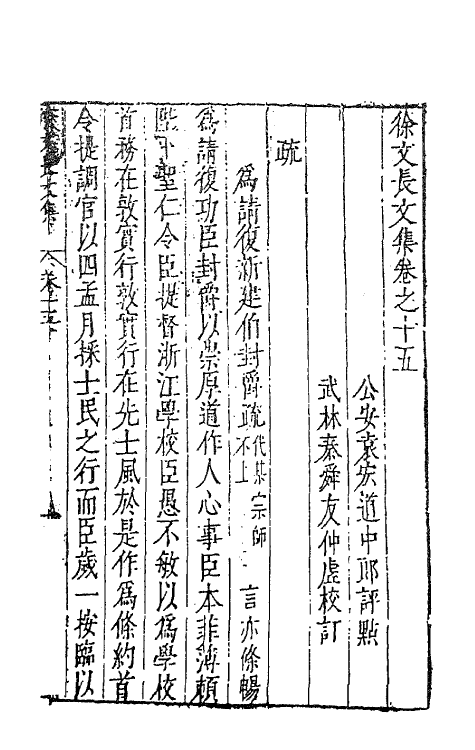 徐文長文集卷之十五
公安袁宏道中郎評點
武林秦舜友仲虛校訂
疏
為請復新建伯封爵疏代某宗師不上 言亦條暢
為請復功臣封爵以崇厚道作人心事臣本菲薄頼
陛下聖仁令臣提督浙江學校臣愚不敏以為學校
首務在敦實行敦實行在先士風於是作為條約首
令提調官以四孟月採士民之行而臣歲一按臨以
徐文長文集 卷十五